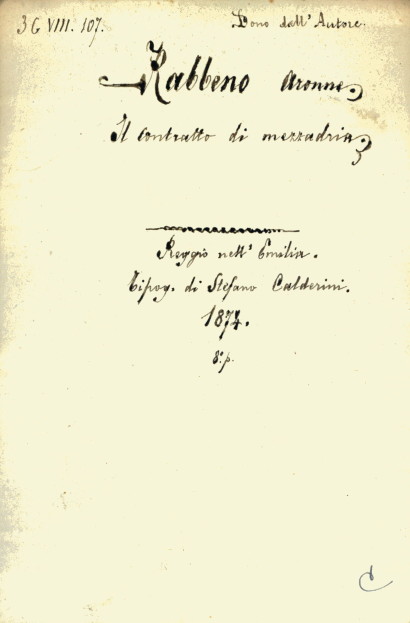 3 G VIII. 107.
Dono dall' Autore.
Rabbeno Aronne
Il contratto di mezzadria
Reggio nell' Emilia.
Tipog. di Stefano Calderini.
1874.
8.° p.